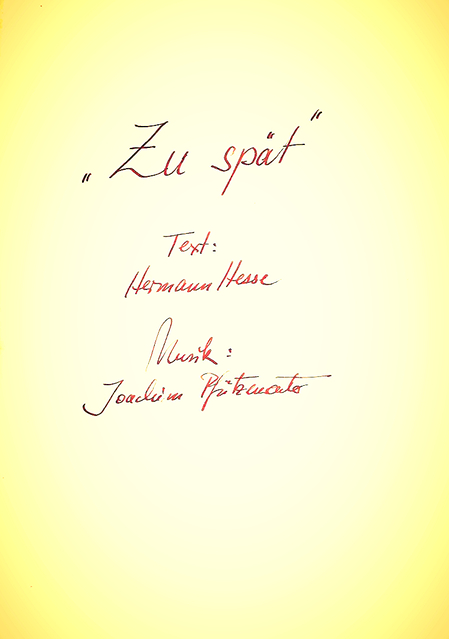 „Zu spät"
Text:
Hermann Hesse
Musik:
Joachim